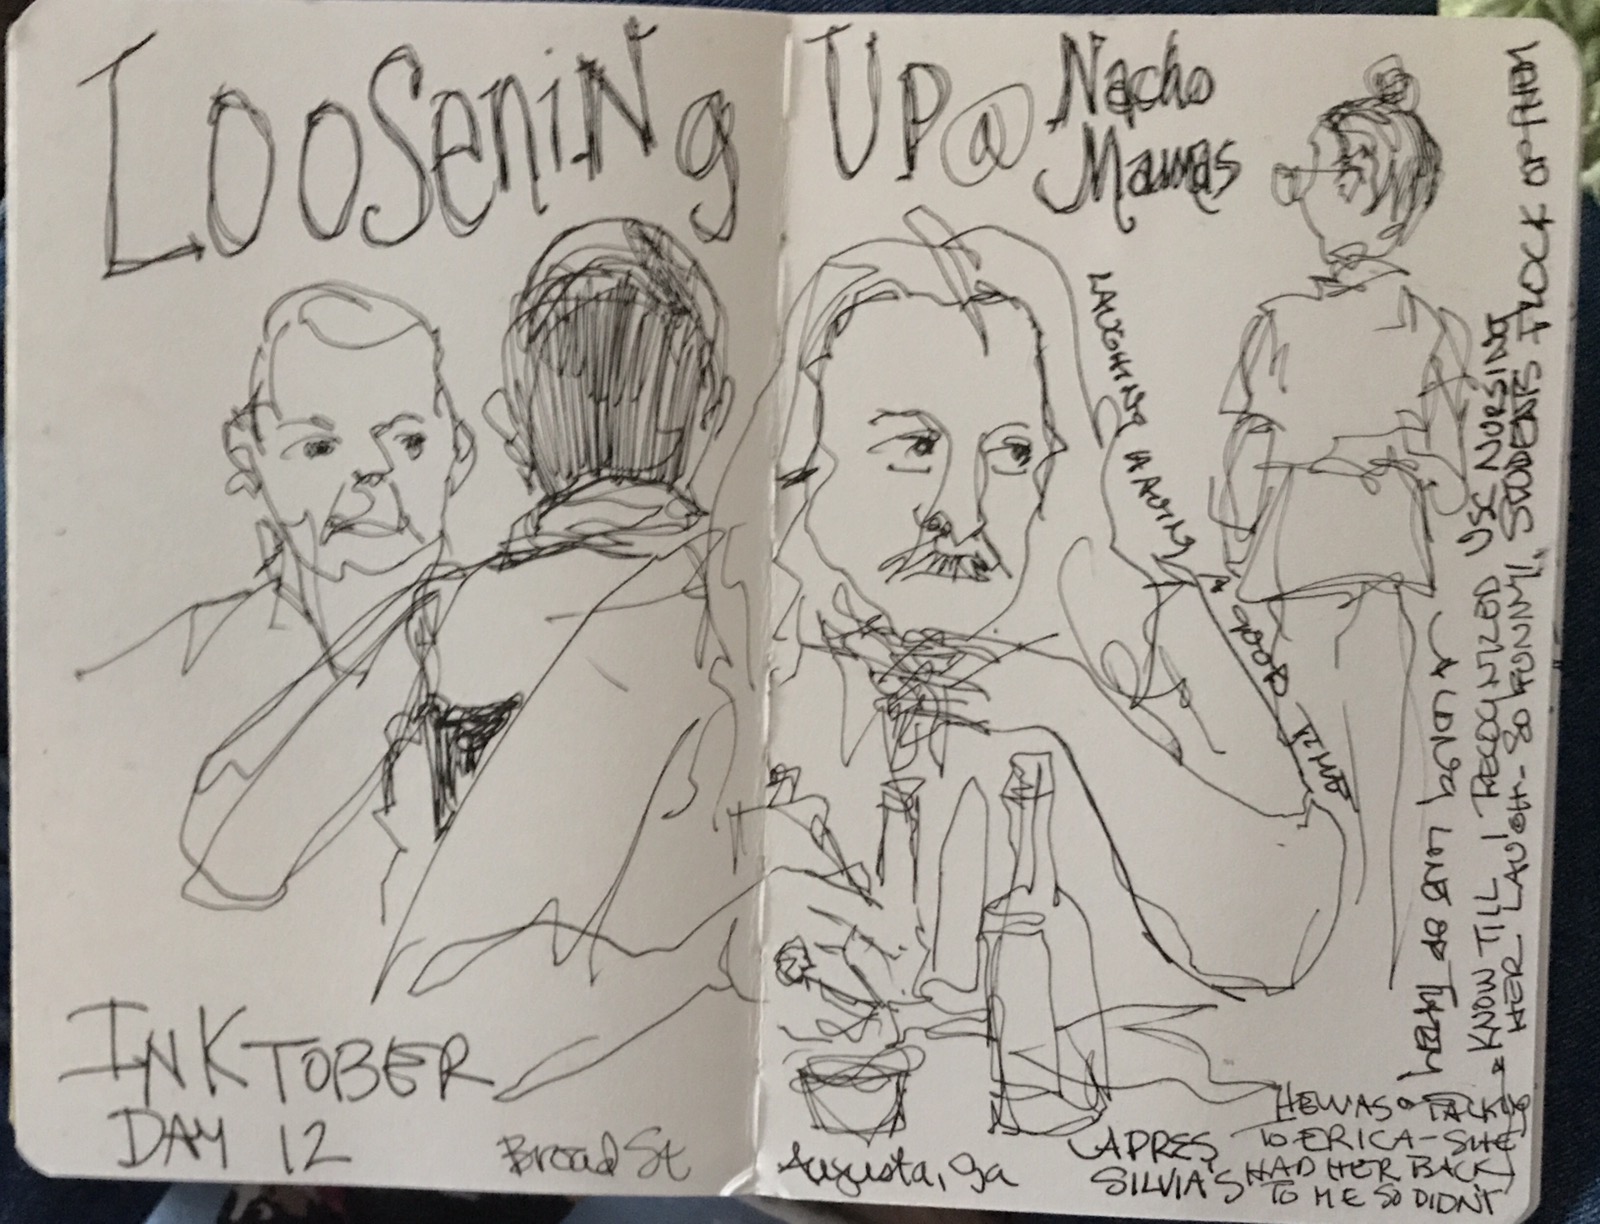 LOOSENING UP @ Nacho
Mamas
LAUGHING HAVING A GOOD TIME
INKTOBER
DAY 12
Broad St
Augusta, Ga
APRES
SILVIA'S
HE WAS TALKING
TO ERICA - SHE
HAD HER BACK
TO ME SO DIDN'T
KNOW TILL I RECOGNIZED USC NURSING
HER LAUGH - SO FUNNY! STUDENTS FLOCK OF THEM